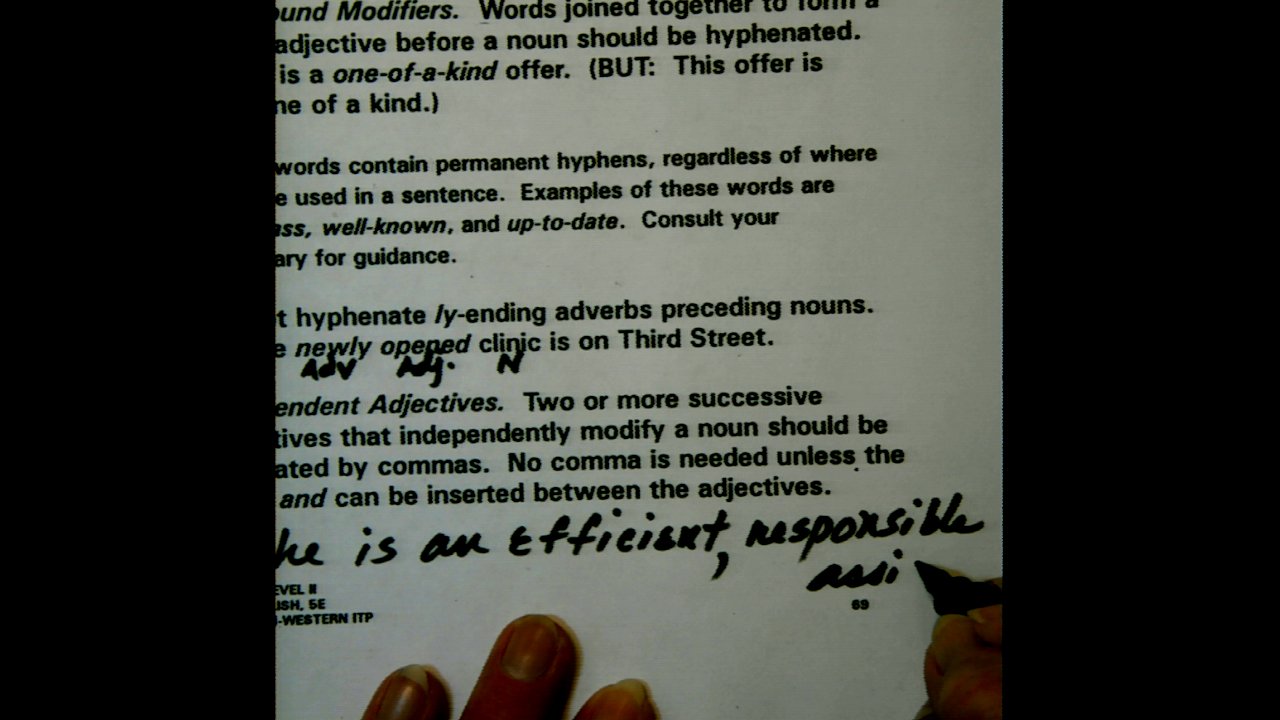 ound Modifiers. Words joined together to form a
adjective before a noun should be hyphenated.
is a one-of-a-kind offer. (BUT: This offer is
ne of a kind.)
words contain permanent hyphens, regardless of where
e used in a sentence. Examples of these words are
ass, well-known, and up-to-date. Consult your
ary for guidance.
t hyphenate ly-ending adverbs preceding nouns.
e newly opened clinic is on Third Street.
Adv Adj. N
endent Adjectives. Two or more successive
tives that independently modify a noun should be
ated by commas. No comma is needed unless the
and can be inserted between the adjectives.
he is an efficient, responsible
assi
EVEL II
ISH, 5E
-WESTERN ITP
69